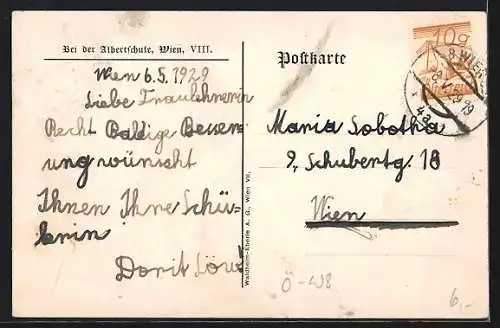 Bei der Albertschule, Wien, VIII.
Wien 6.5.1929
Liebe Fraulehrerin
Recht Baldige Besser-
ung wünscht
Ihnen Ihre Schü-
lerin
Dorit Löwy
Postkarte
Maria Sobotha
9, Schubertg. 18
Wien
Waldheim-Eberle A. G., Wien VII.
10g
9 WIEN
4a
Ö-W8
6,-